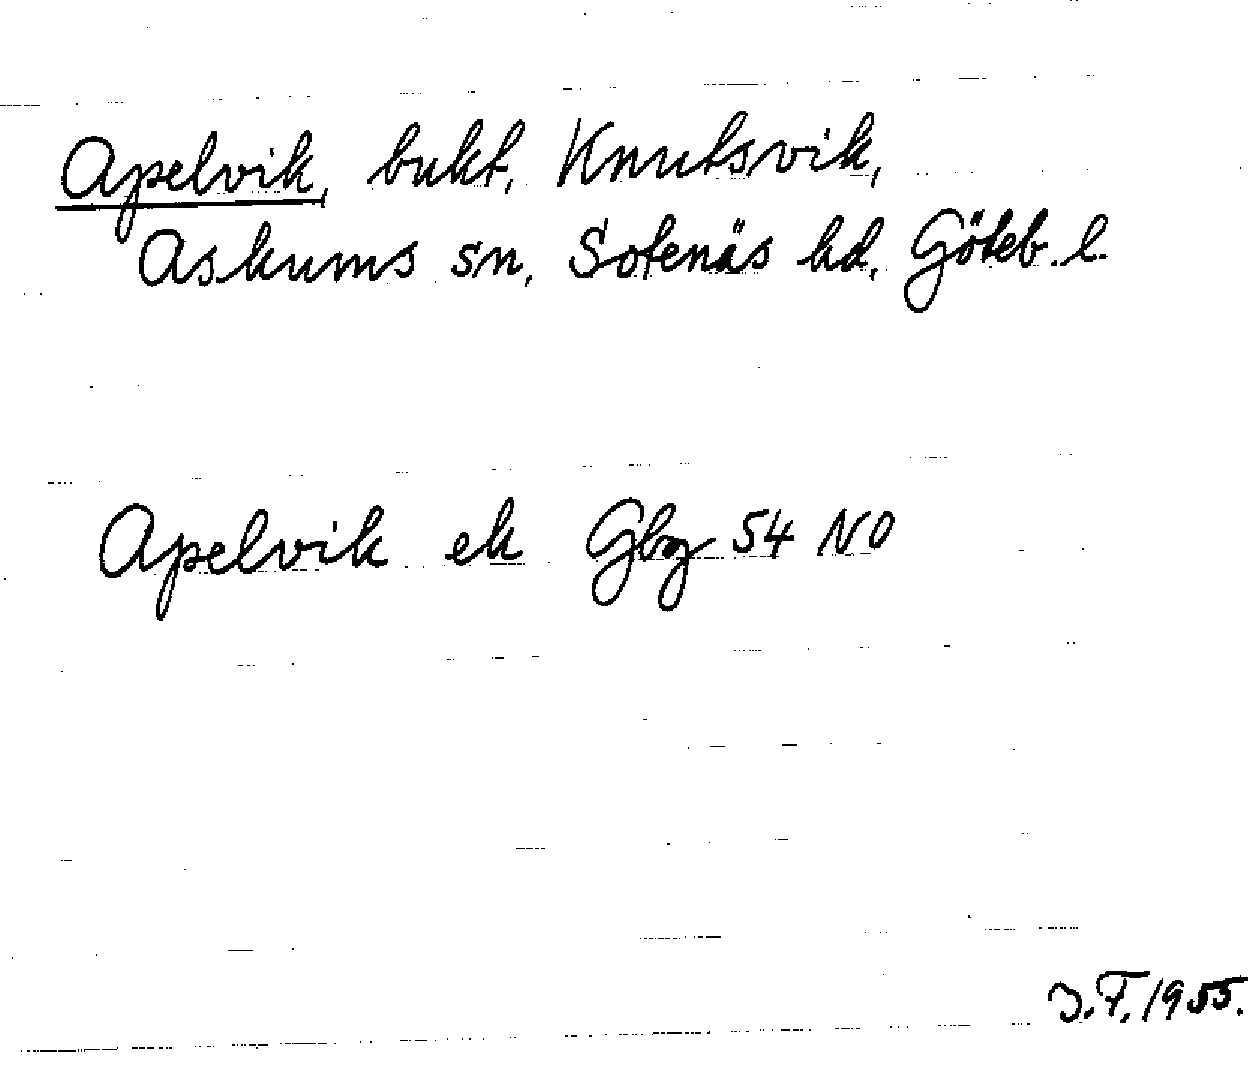 Apelvik, bukt, Knutsvik,
Askums sn, Sotenäs hd, Göteb. l.
Apelvik ek Gbg 54 NO
J.F. 1955.